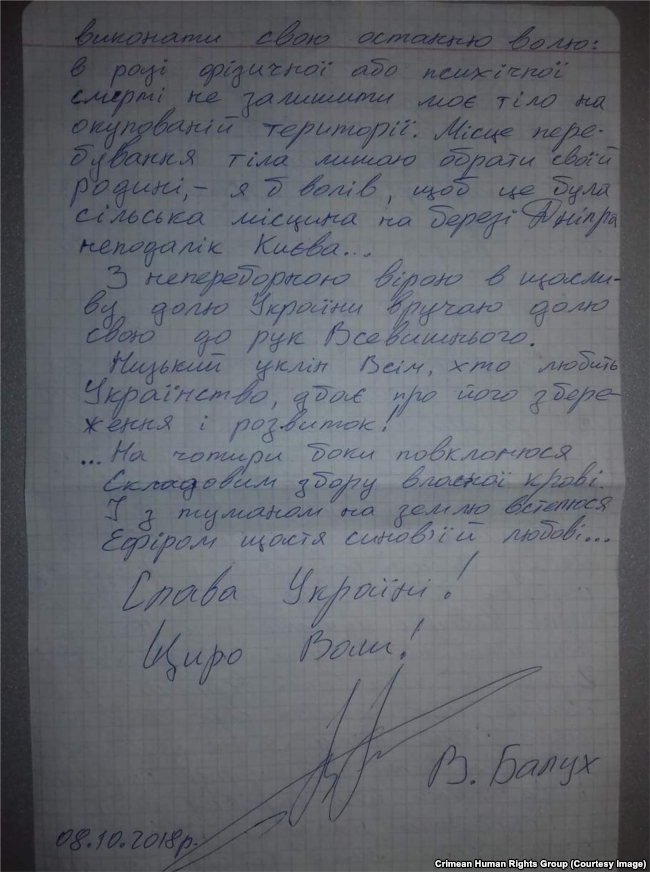 виконати свою останню волю:
в разі фізичної або психічної
смерті не залишити моє тіло на
окупованій території. Місце пере-
бування тіла лишаю обрати своїй
родині,– я б волів, щоб це була
сільська місцина на березі Дніпра
неподалік Києва...
З непереборною вірою в щасли-
ву долю України вручаю долю
свою до рук Всевишнього.
Низький уклін Всім, хто любить
Українство, дбає про його збере-
ження і розвиток!
...На чотири боки поклонюся
Складовим збору власної крові.
І з туманом на землю встелюся
Ефіром щастя синовїй любові...
Слава Україні!
Щиро Ваш!
В. Балух
08.10.2018р.
Crimean Human Rights Group (Courtesy Image)